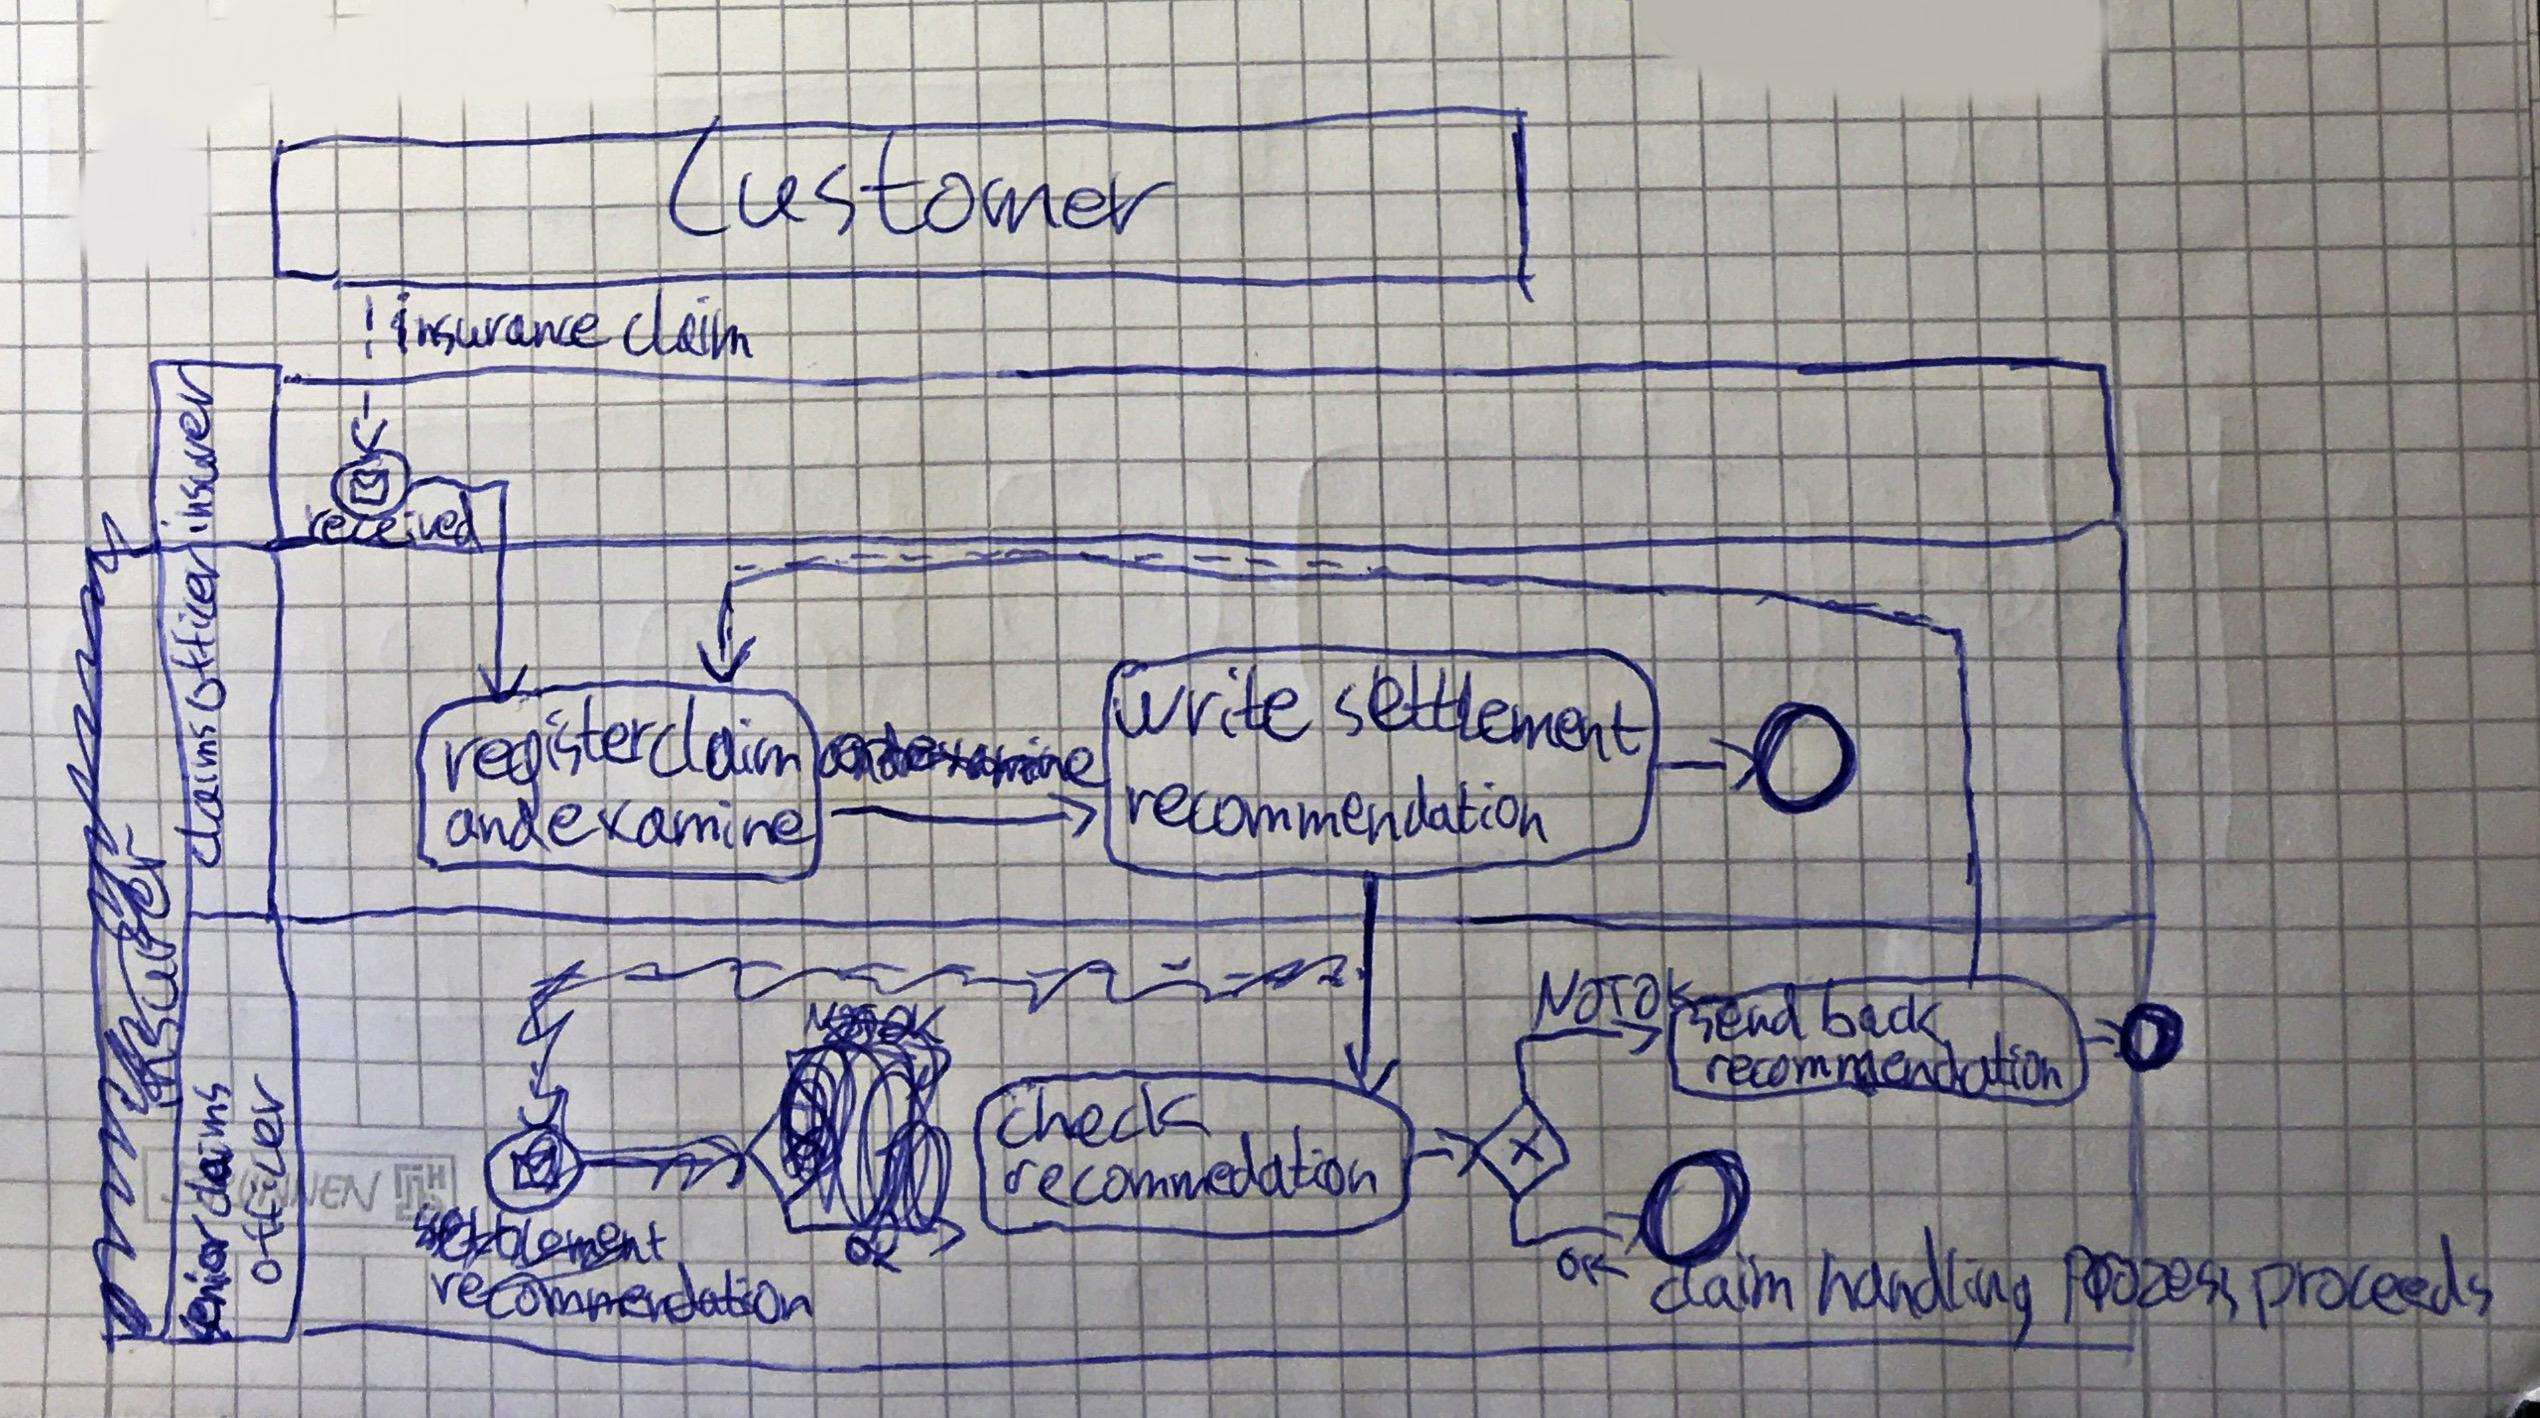 Customer
insurance claim
insurer
received
claims officer
register claim
and examine
and examine
write settlement
recommendation
insurer
senior claims
officer
NOT OK
OK
settlement
recommendation
check
recommedation
X
NOT OK
send back
recommendation
OK
claim handling process proceeds